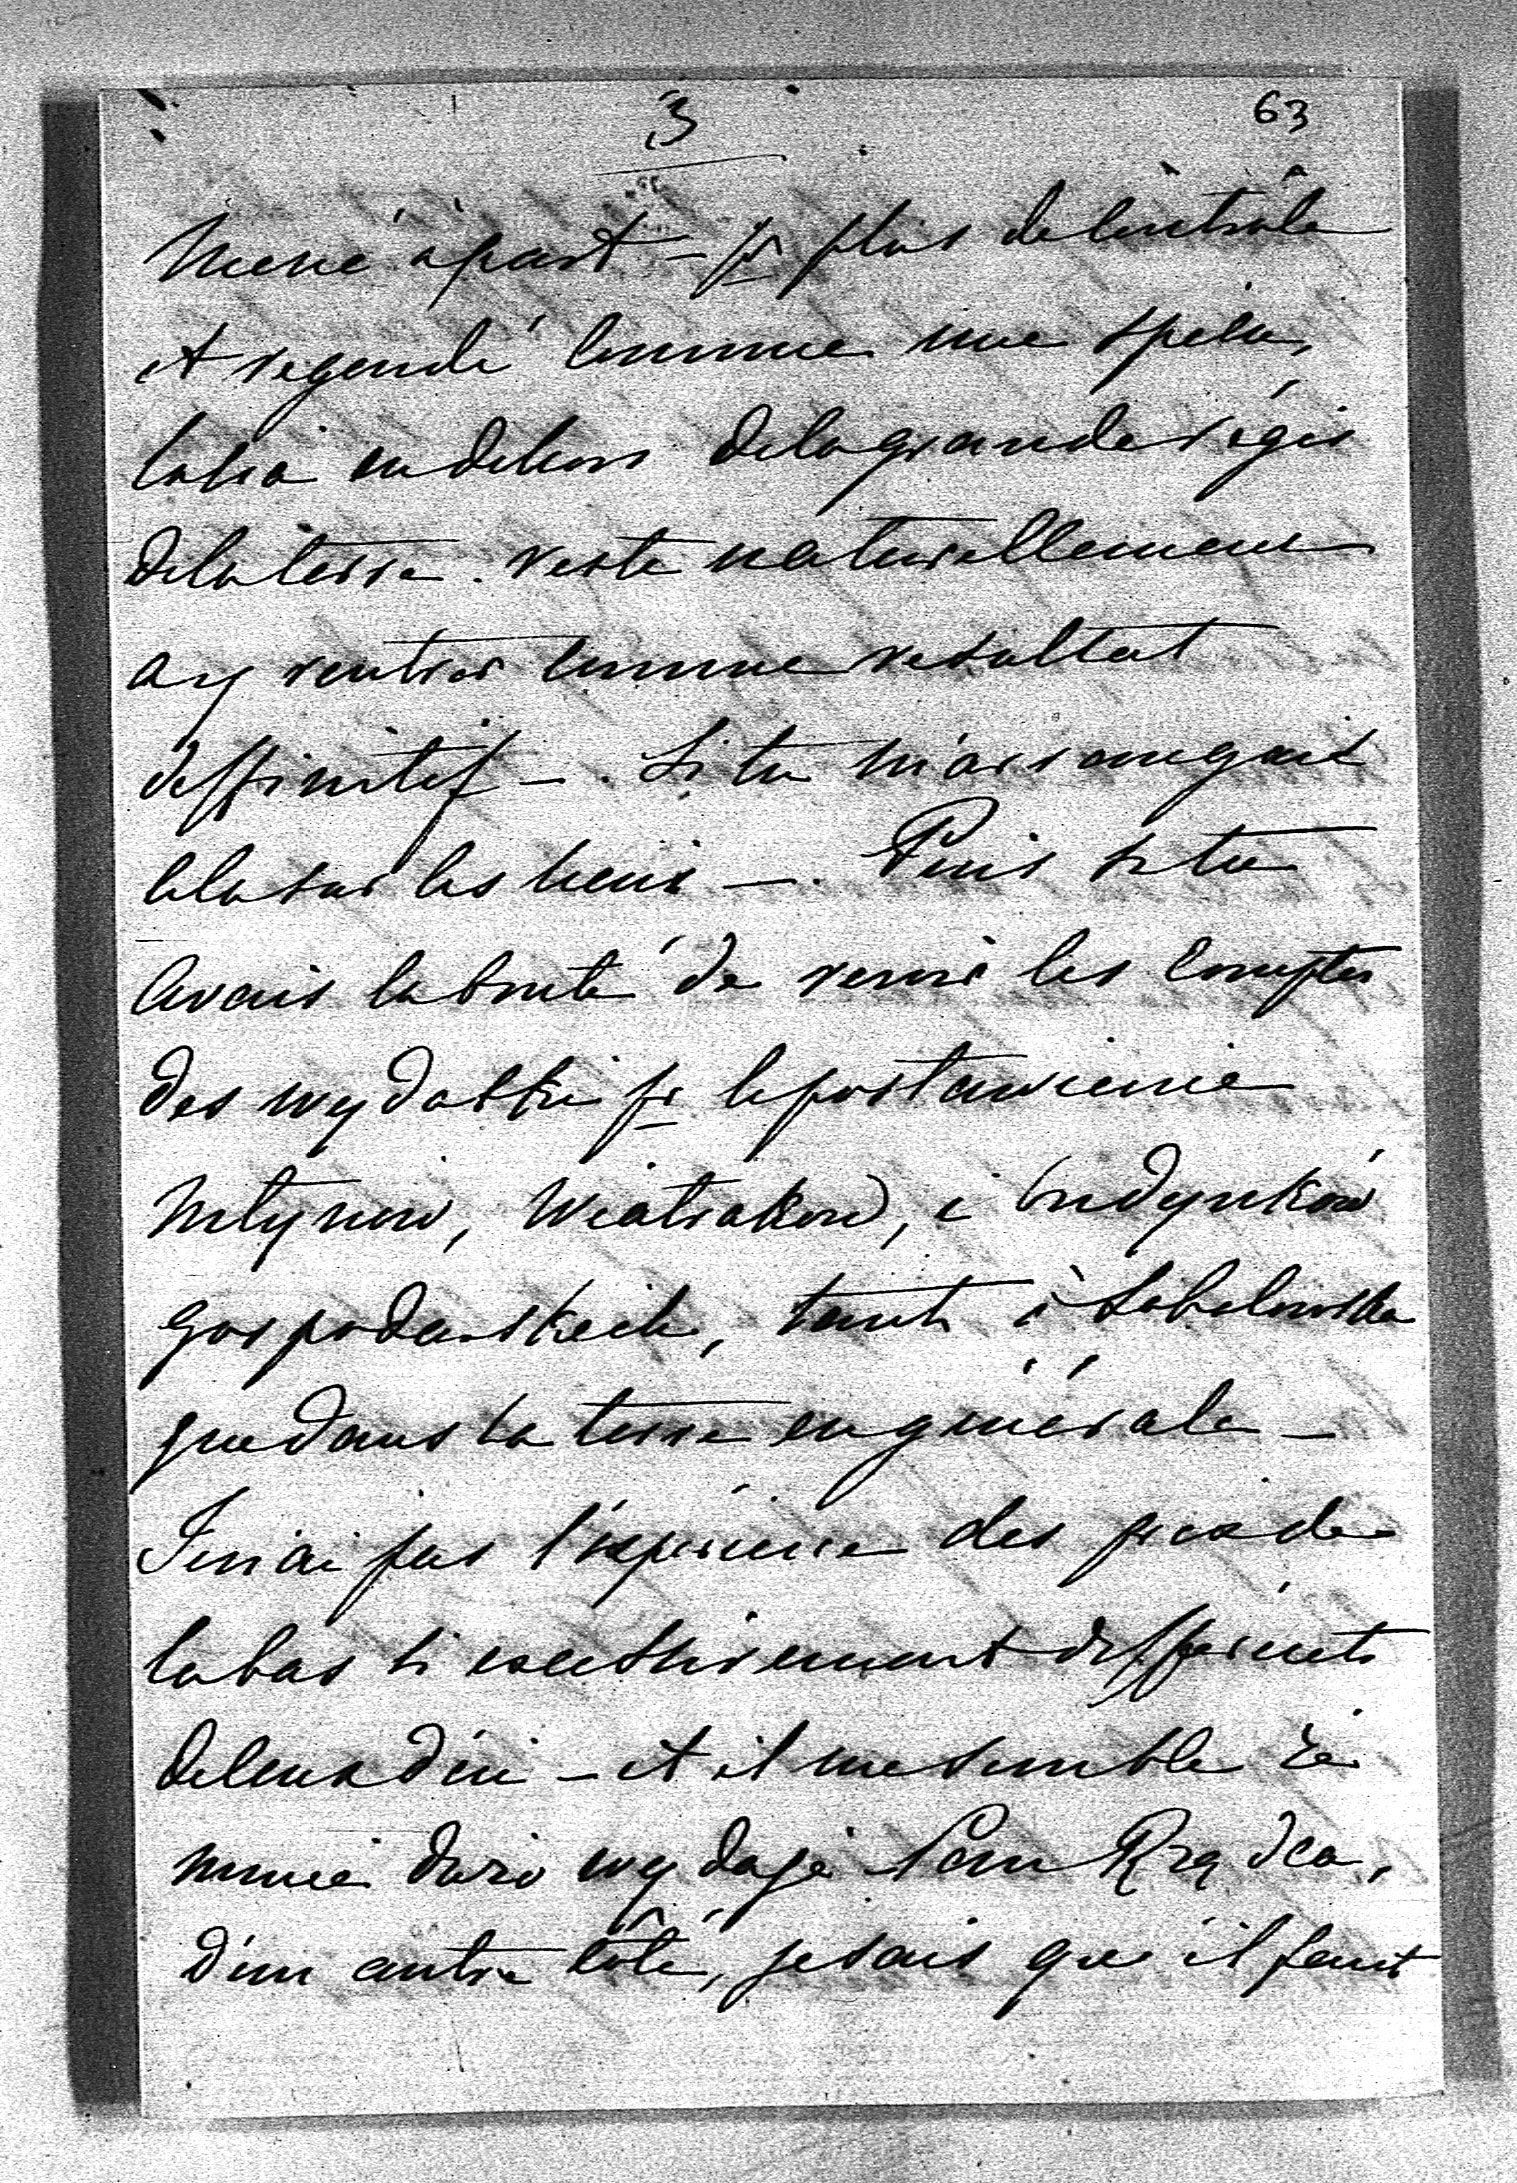 3
63
mené à part – pr plus de contrôle
et regardé comme une specu,
latia en dehors de la grande régie
de la terre. reste naturellement
a y rentrer comme resultat
deffinitif –. Si tu m'arrangais
cela sur les lieux –. Puis si tu
avais la bonté de revoir les comptes
des wydatki pr le postawienie
Młynow, Wiatrakow, i budynków
gospodarskich, tant à Sobolowka
que dans la terre en générale –
Je n'ai pas l'expérience des prix de
labas si excessivement differents
de ceux d'ici – et il me semble że
mnie dużo wydaje Pan Rządca,
d'un autre côté, je sais que il faut